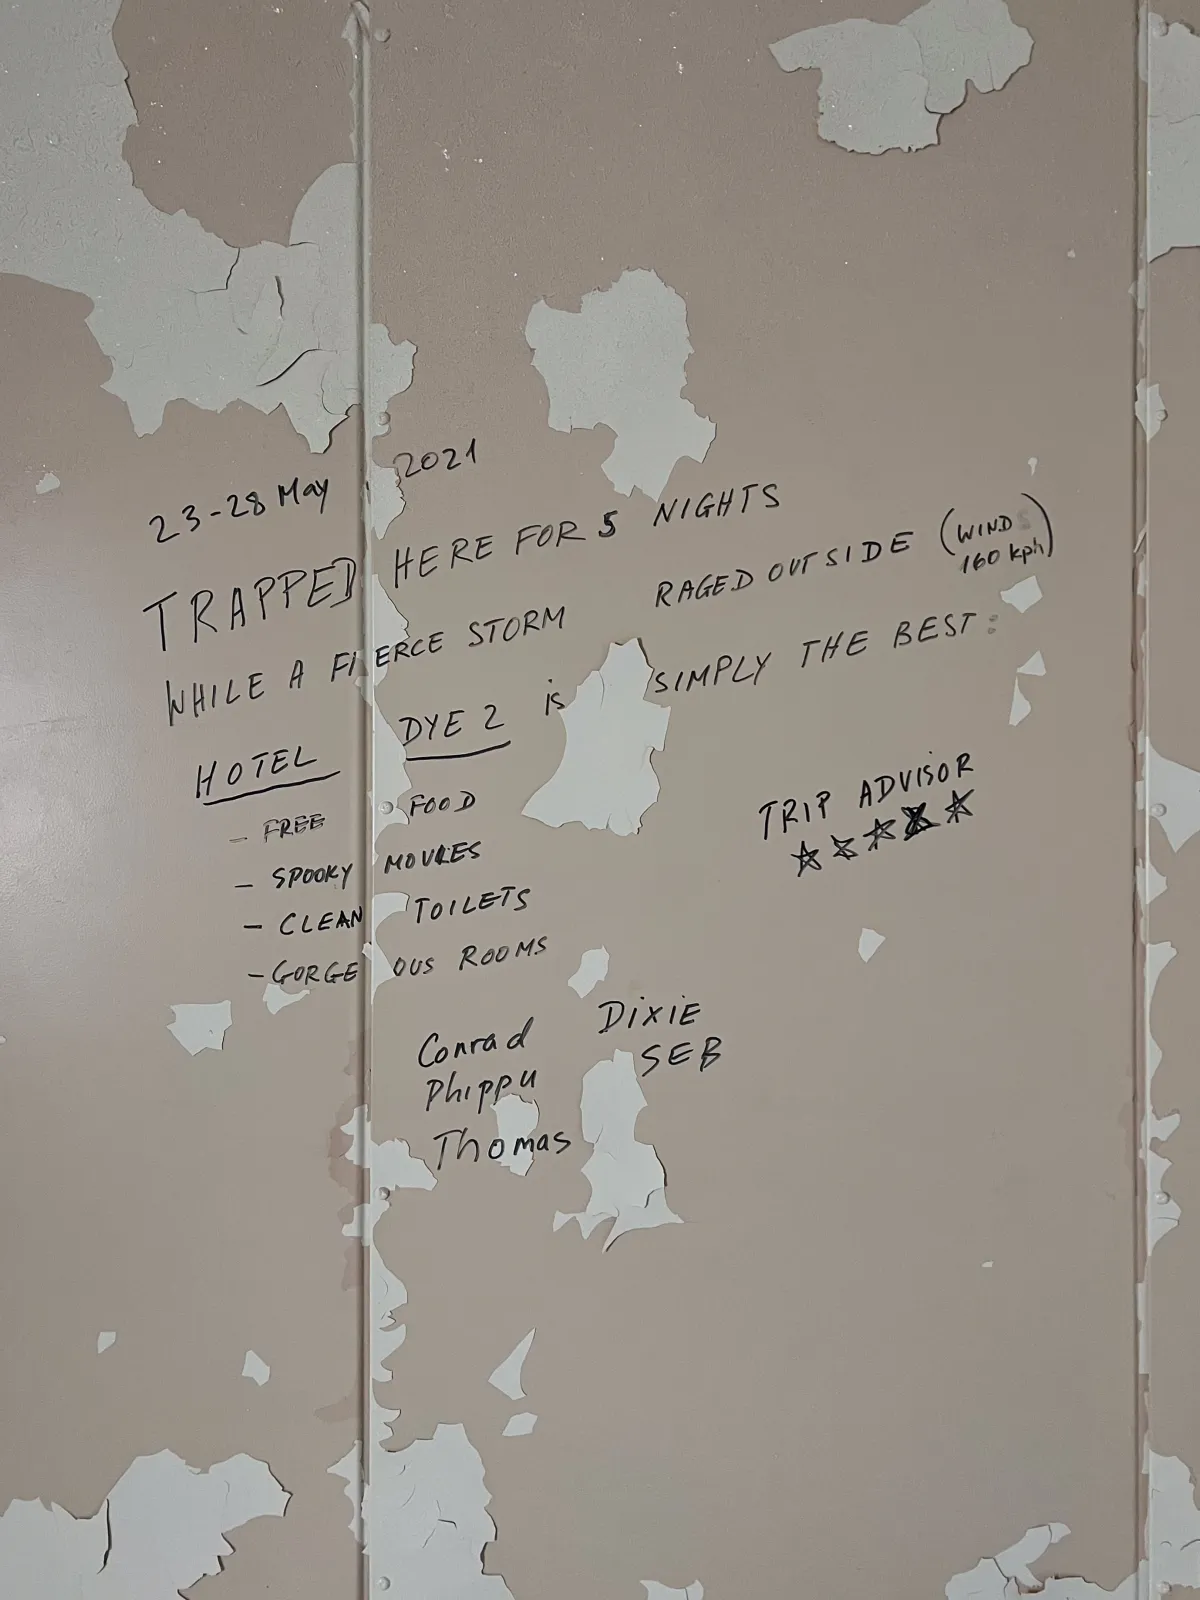 23-28 May 2021
TRAPPED HERE FOR 5 NIGHTS
WHILE A FIERCE STORM RAGED OUTSIDE (WIND
160 kph)
HOTEL DYE 2 is SIMPLY THE BEST:
- FREE FOOD
- SPOOKY MOVIES
- CLEAN TOILETS
- GORGEOUS ROOMS
TRIP ADVISOR
★★★★★
Conrad
Phippu
Thomas
DIXIE
SEB